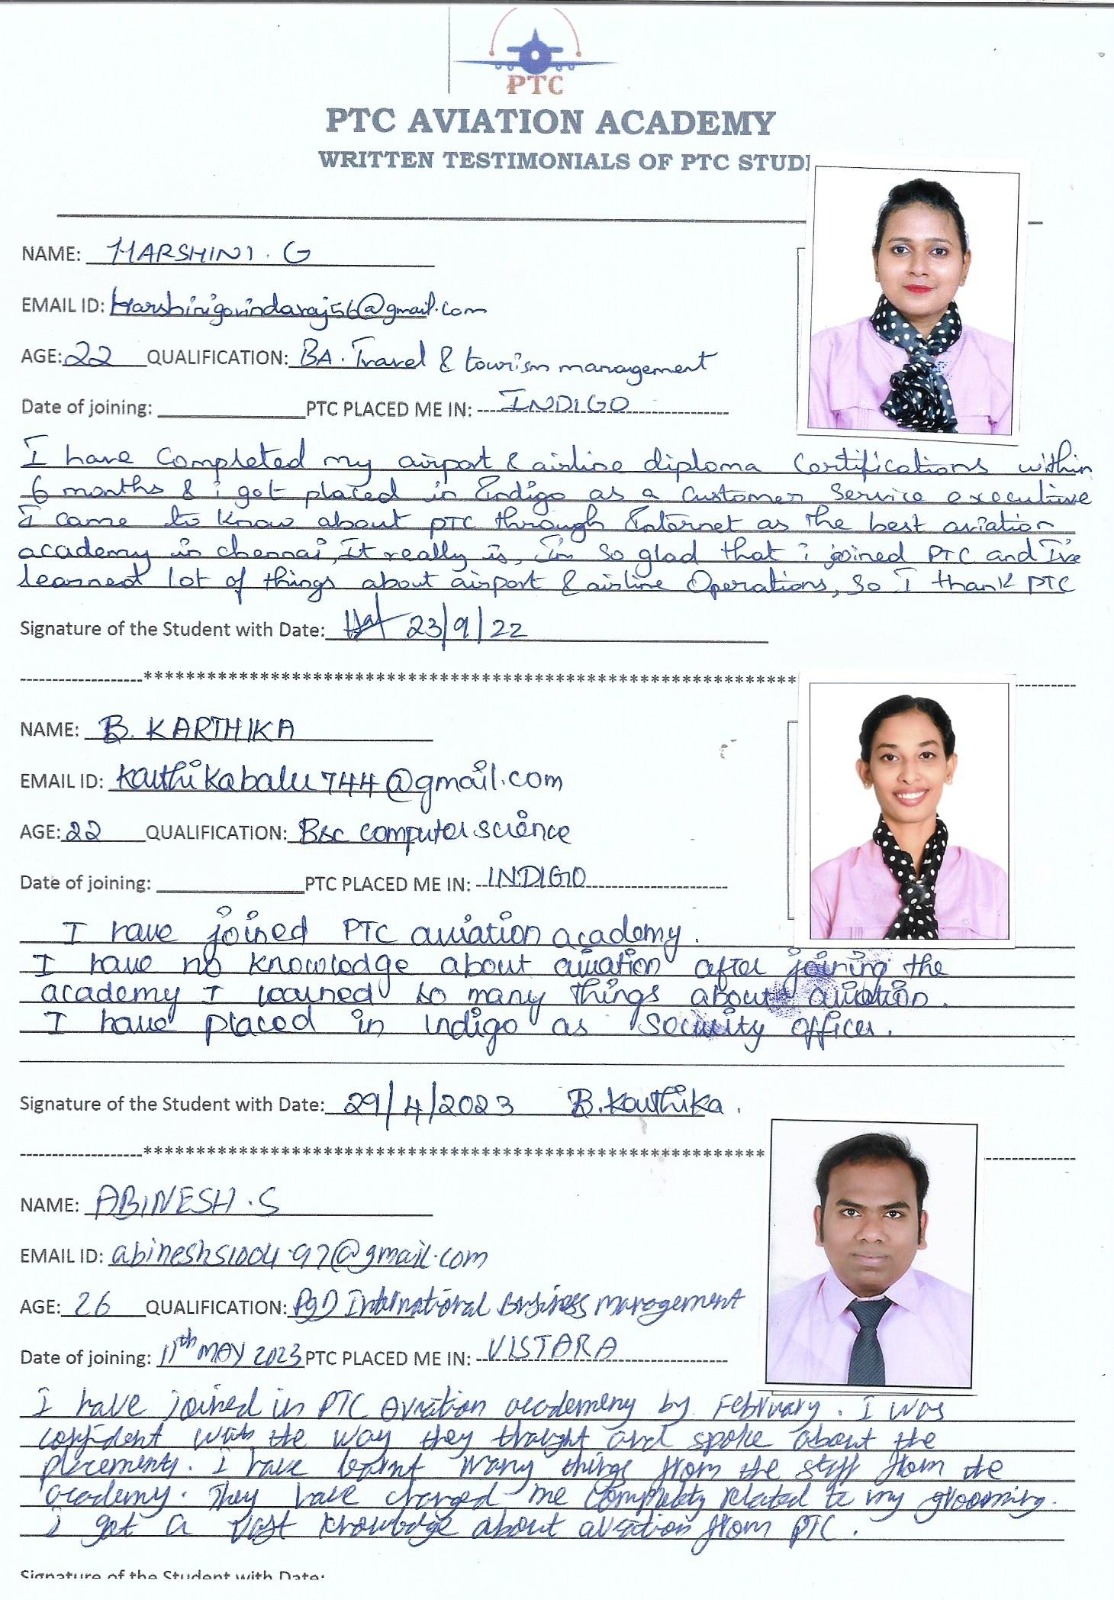 PTC
PTC AVIATION ACADEMY
WRITTEN TESTIMONIALS OF PTC STUD
NAME: HARSHINI. G
EMAIL ID: Harshinigovindaraj56@gmail.com
AGE: 22 QUALIFICATION: BA. Travel & tourism management
Date of joining: PTC PLACED ME IN: INDIGO
I have completed my airport & airline diploma certifications within
6 months & i got placed in Indigo as a customer service executive
I came to know about PTC through Internet as the best aviation
academy in chennai, It really is, I'm so glad that i joined PTC and I've
learnent lot of things about airport & airline Operations, So I thank PTC
Signature of the Student with Date: 23/9/22
********************************************************************
NAME: B. KARTHIKA
EMAIL ID: karthikabalu744@gmail.com
AGE: 22 QUALIFICATION: Bsc computer science
Date of joining: PTC PLACED ME IN: INDIGO
I have joined PTC aviation academy.
I have no knowledge about aviation after joining the
academy I learned so many things about aviation.
I have placed in indigo as security officer.
Signature of the Student with Date: 29/4/2023 B.Karthika.
********************************************************************
NAME: ABINESH.S
EMAIL ID: abineshs1004.97@gmail.com
AGE: 26 QUALIFICATION: PGD International Business management
Date of joining: 11th MAY 2023 PTC PLACED ME IN: VISTARA
I have joined in PTC Aviation academeny by February. I was
confident with the way they traught and spoke about the
placements. I have learnt many things from the staff from the
academy. They have changed me completely related to my grooming.
i got a vast knowledge about aviation from PTC.
Signature of the Student with Date: